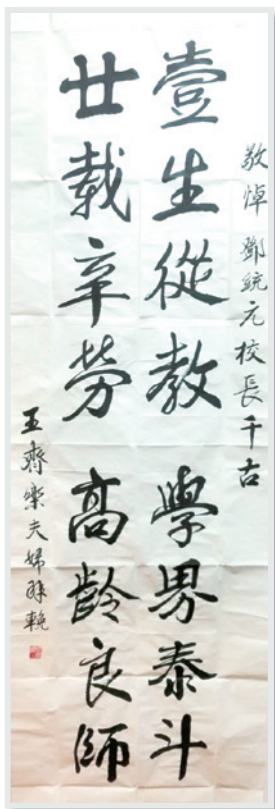 敬悼 鄧統元校長千古
壹生從教 學界泰斗
廿載辛勞 高齡良師
王齊樂夫婦拜輓